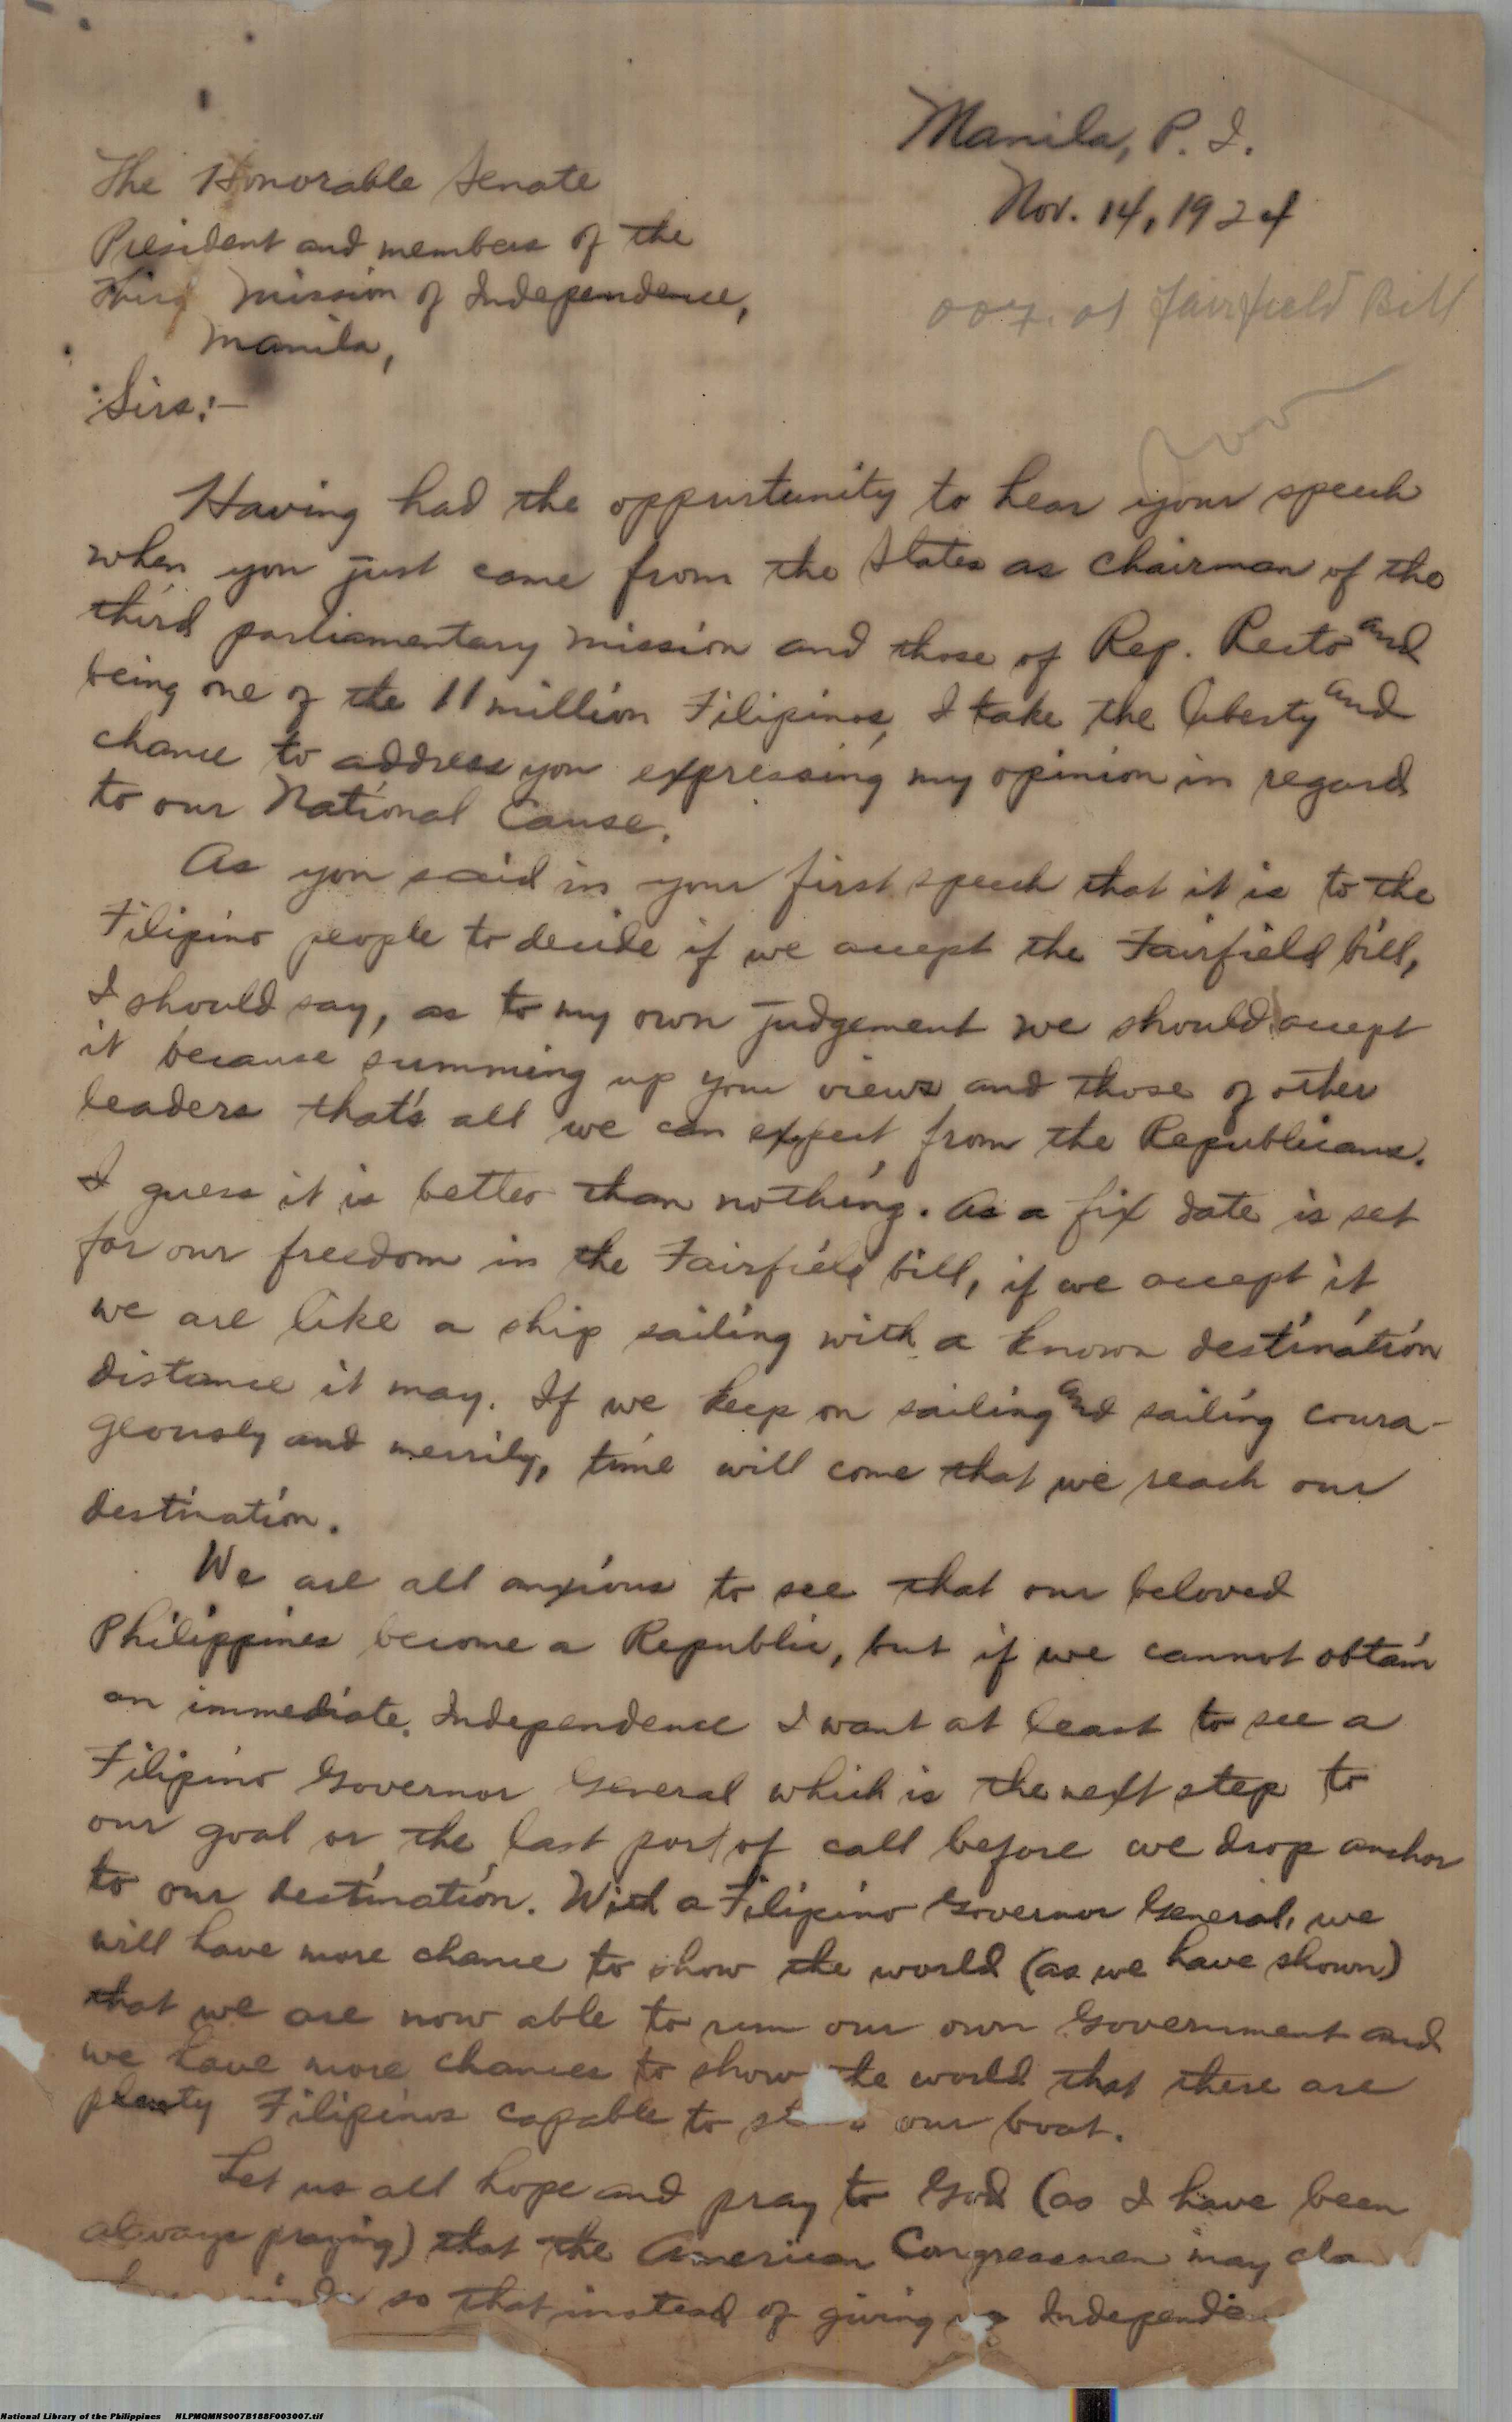 Manila, P. I.
Nov. 14, 1924
The Honorable Senate
President and members of the
Third Mission of Independence,
Manila,
Sirs:—
of Fairfield Bill
Having had the oppurtunity to hear your speech
when you just came from the States as Chairman of the
third parliamentary mission and those of Rep. Recto and
being one of the 11 million Filipinos, I take the liberty and
chance to address you expressing my opinion in regard
to our National Cause.
As you said in your first speech that it is to the
Filipino people to decide if we accept the Fairfield bill,
I should say, as to my own judgement we should accept
it because summing up your views and those of other
leaders that's all we can expect from the Republicans.
I guess it is better than nothing. As a fix date is set
for our freedom in the Fairfield bill, if we accept it
we are like a ship sailing with a known destination
distance it may. If we keep on sailing and sailing coura-
geously and merrily, time will come that we reach our
destination.
We are all anxious to see that our beloved
Philippines become a Republic, but if we cannot obtain
an immediate Independence I want at least to see a
Filipino Governor General which is the next step to
our goal or the last port of call before we drop anchor
to our destination. With a Filipino Governor General, we
will have more chance to show the world (as we have shown)
that we are now able to run our own Government and
we have more chances to show the world that there are
plenty Filipinos capable to st our boat.
Let us all hope and pray to God (as I have been
always praying) that the American Congressmen may cla
so that instead of giving us Independen
National Library of the Philippines NLPMQMNS007B188F003007.tif